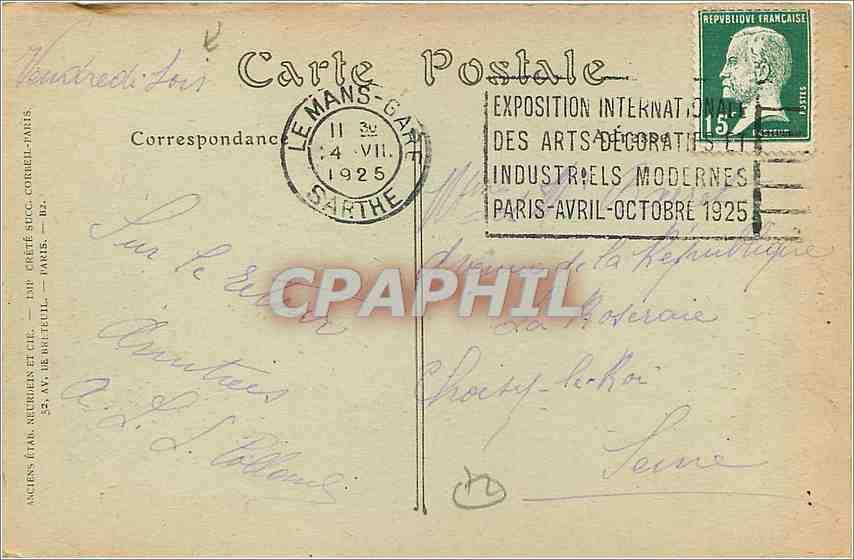 Vendredi soir
Carte Postale
REPVBLIQVE FRANÇAISE
15c
POSTES
PASTEUR
LE MANS-GARE
11 30
4 VII.
1925
SARTHE
EXPOSITION INTERNATIONALE
DES ARTS DÉCORATIFS ET
INDUSTRIELS MODERNES
PARIS-AVRIL-OCTOBRE 1925
Correspondance
Sur le retour
Amitiés
A. L. L.
Mme
Avenue de la République
La Roseraie
Choisy-le-Roi
Seine
CPAPHIL
ANCIENS ÉTAB. NEURDEIN ET CIE. — IMP CRÉTÉ SUCC. CORBEIL-PARIS.
52, AV. DE BRETEUIL. — PARIS. — B2.